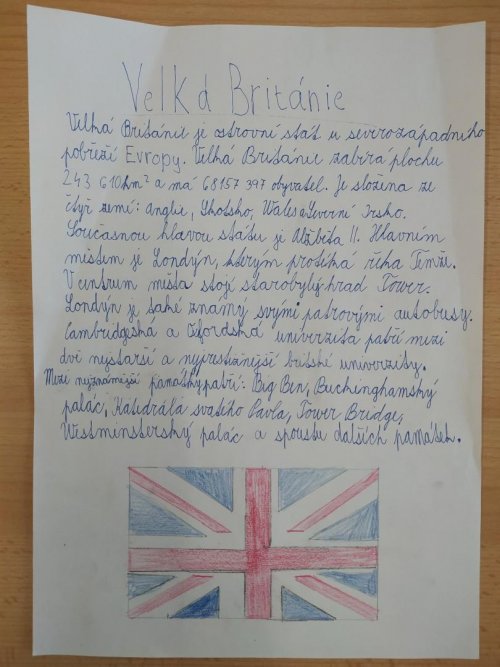 Velká Británie
Velká Británie je ostrovní stát u severozápadního
pobřeží Evropy. Velká Británie zabírá plochu
243 610km² a má 68157 397 obyvatel. Je složena ze
čtyř zemí: Anglie, Skotsko, Wales a Severní Irsko.
Současnou hlavou státu je Alžběta II. Hlavním
městem je Londýn, kterým protéká řeka Temže.
V centrum města stojí starobylý hrad Tower.
Londýn je také známý svými patrovými autobusy.
Cambridgeská a Oxfordská univerzita patří mezi
dvě nejstarší a nejprestižnější britské univerzity.
Mezi nejznámější památky patří: Big Ben, Buckinghamský
palác, Katedrála svatého Pavla, Tower Bridge,
Westminsterský palác a spoustu dalších památek.